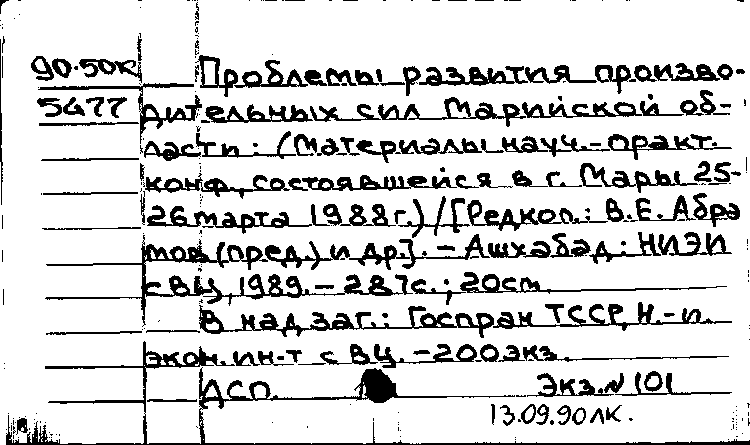 90-50к Проблемы развития произво-
5477 дительных сил Марийской об-
ласти: (Материалы науч.-практ.
конф., состоявшейся в г. Мары 25-
26 марта 1988г.)/[Редкол.: В.Е. Абра
мов (пред.) и др.]. - Ашхабад: НИЭИ
с ВЦ, 1989. - 287с.; 20см.
В над заг.: Госплан ТССР, Н.-и.
экон. ин-т с ВЦ. - 200 экз.
ДСП. Экз. № 101
13.09.90 ЛК.